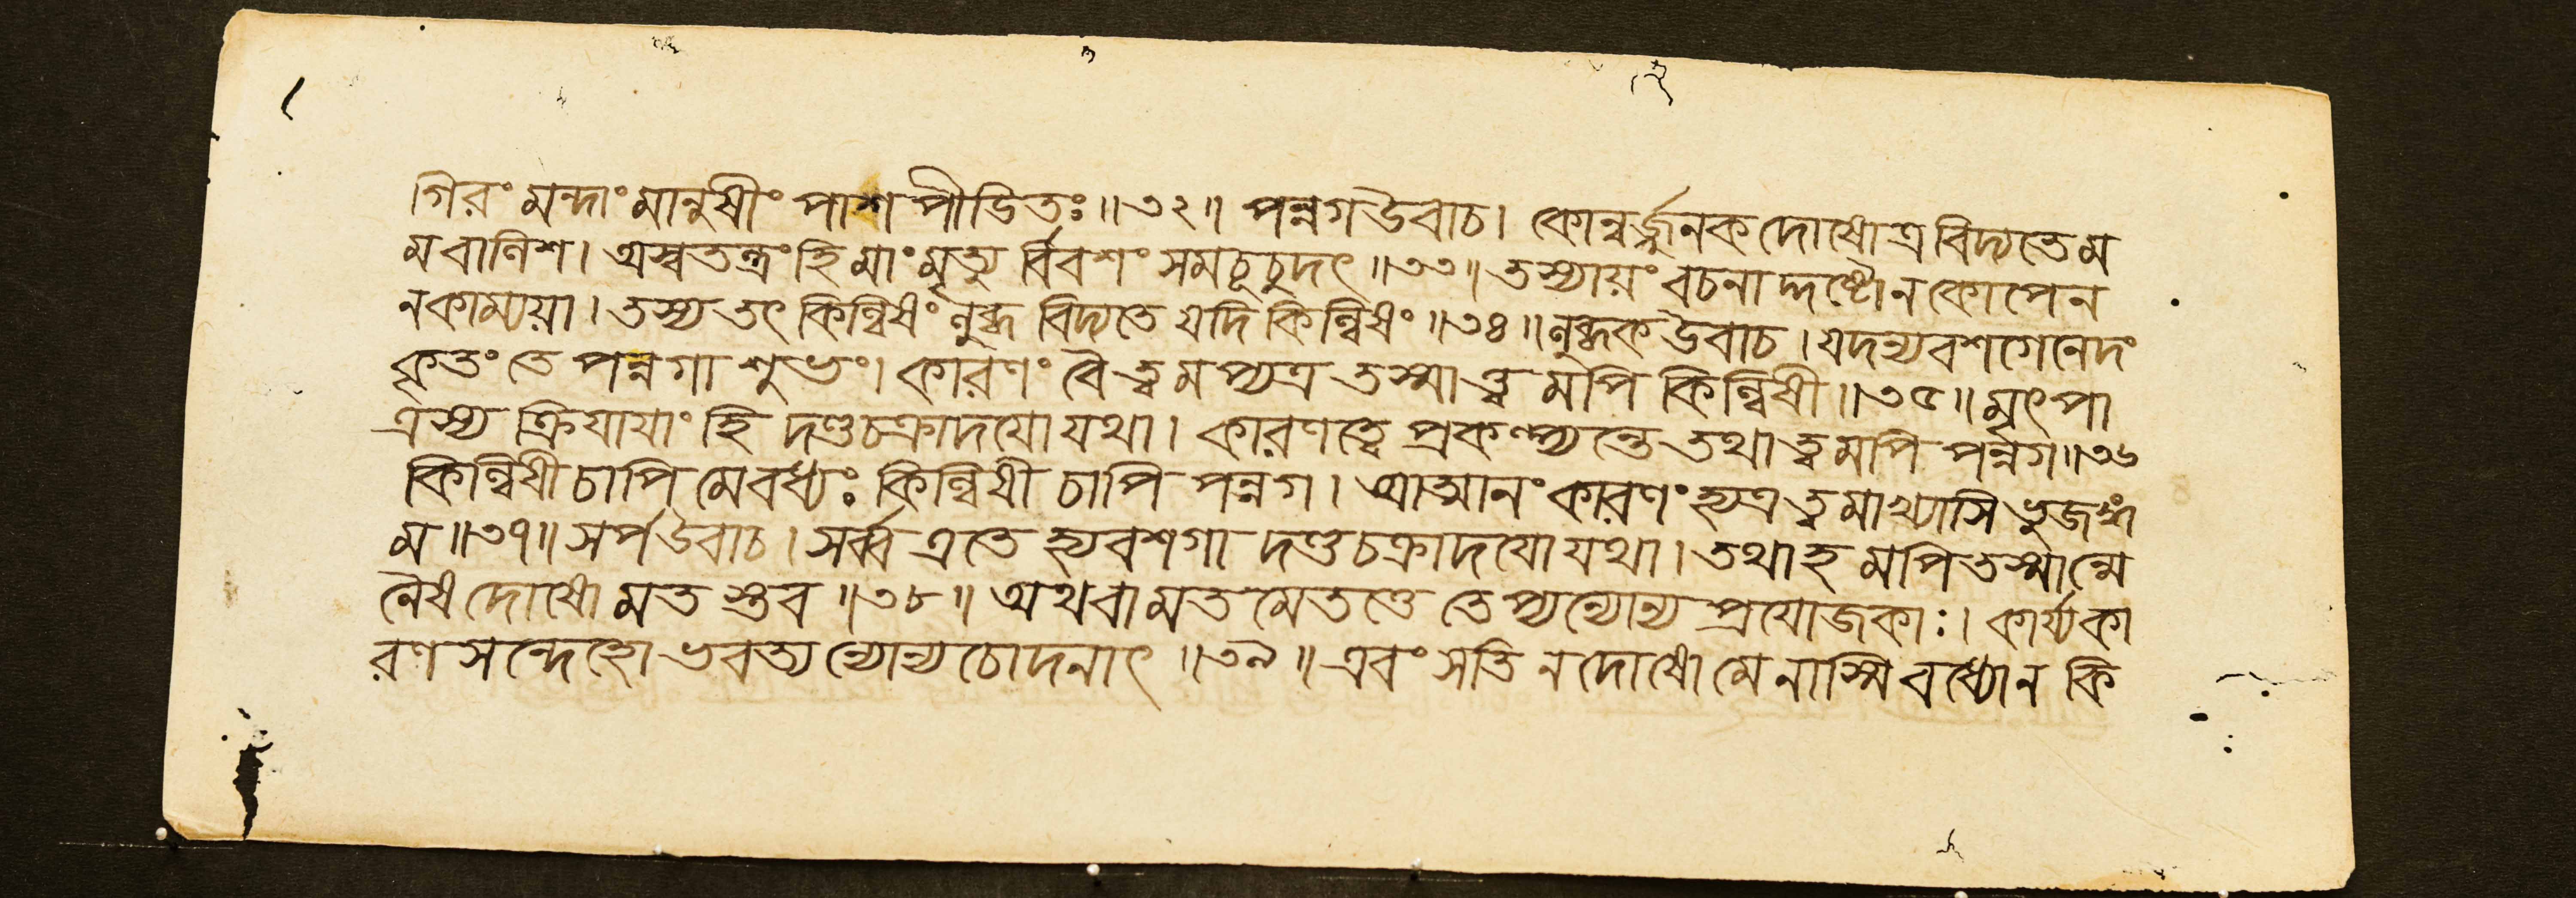 গিরং মন্দাং মানুষীং পাশপীডিতঃ॥৩২॥ পন্নগউবাচ। কোন্বর্জ্জুনক দোষোত্র বিদ্যতে ম
মবানিশ। অস্বতন্ত্রং হি মাং মৃত্যু র্বিবশং সমচূচুদৎ॥৩৩॥ তস্যায়ং বচনাদ্দষ্টোন কোপেন
নকাম্যয়া। তস্য তৎ কিল্বিষং লুব্ধ বিদ্যতে যদি কিল্বিষং॥৩৪॥ লুব্ধক উবাচ। যদন্যবশগেনেদং
কৃতং তে পন্নগাশুভং। কারণং বৈ ত্বমপ্যত্র তস্মাত্ত্বমপি কিল্বিষী॥৩৫॥ মৃৎপা
ত্রস্য ক্রিযাযাং হি দণ্ডচক্রাদযো যথা। কারণত্বে প্রকল্প্যন্তে তথা ত্বমপি পন্নগ॥৩৬
কিল্বিষী চাপি মেবধ্যঃ কিল্বিষী চাপি পন্নগ। আত্মানং কারণং হ্যত্র ত্বমাখ্যাসি ভুজঙ্গ
ম॥৩৭॥ সর্পউবাচ। সর্ব্ব এতে হ্যবশগা দণ্ডচক্রাদযো যথা। তথাহমপি তস্মান্মে
নৈষ দোষো মতস্তব॥৩৮॥ অথবা মতমেতত্তে তেপ্যন্যোন্য প্রযোজকাঃ। কার্য্যকা
রণ সন্দেহো ভবত্যন্যোন্যচোদনাৎ॥৩৯॥ এবং সতি ন দোষো মে নাস্মি বধ্যোন কি